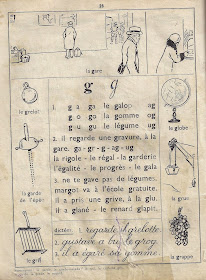 28
la gare
g g
le grelot
le globe
la garde
de l'épée
la grue
le gril
la grappe
1. g a ga le galop ag
g o go la gomme og
g u gu le légume ug
2. il regarde une gravure, à la
gare. ga - gr - g - ag - ug
la rigole - le régal - la garderie
l'égalité - le progrès - le gala
3. ne te gave pas de légumes.
margot va à l'école gratuite.
il a pris une grive, à la glu.
il a glané - le renard glapit.
dictée. 1 regarde il grelotte
2 gustave a bu le grog.
il a égaré sa gomme.